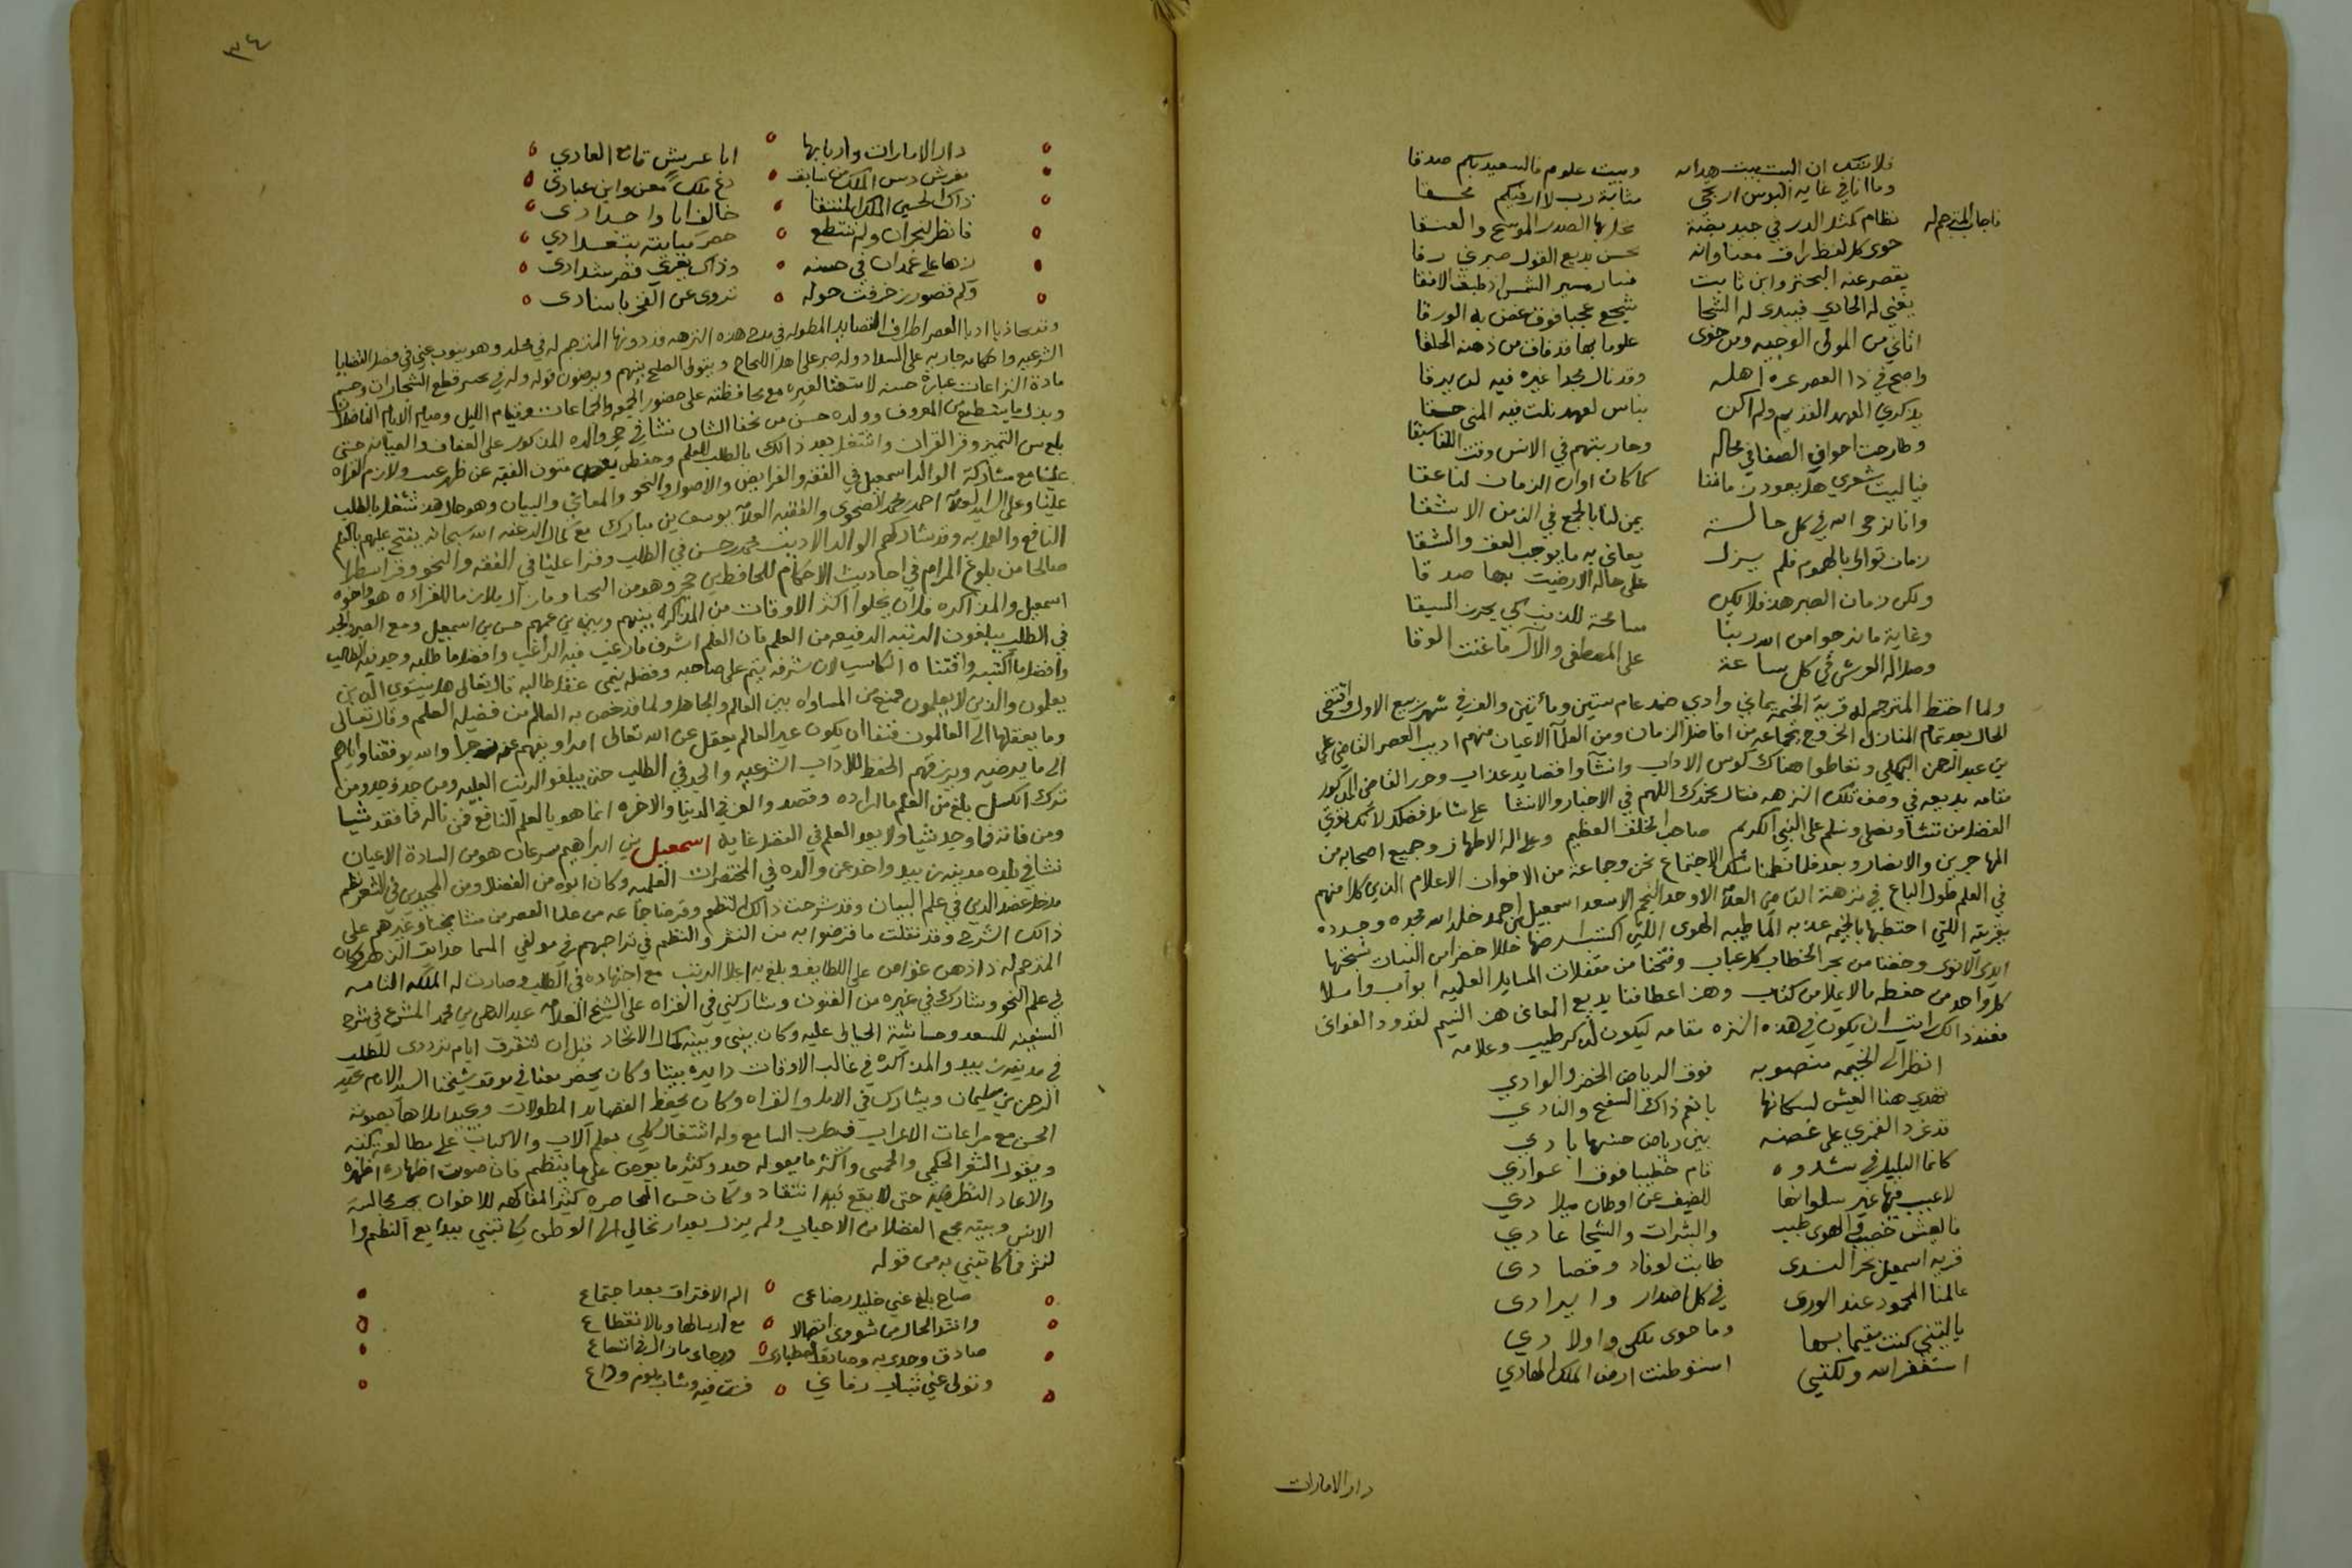 فلا شك ان البيت بيت هداية وبيت علوم فالسعيد بكم صدقا
وما انا في غاية البوس ارتجي مثابة رب لا ارقيكم محقا
فاجاب المترجم له نظام كمثل الدر في جيد بضة تحلى بها الصدر الموشح والعنقا
حوى كل لفظ راق معناه وانه بحسن بديع القول صيرني رقا
يقصر عنه البحتر وابن ثابت فسار مسير الشمس اذ طبق الافقا
يغني له الحادي فيبدى له الشجا شجع عجبا فوق غصن به الورقا
اتاني من المولى الوجيه ومن حوى علوما بها قد فاق من ذهنه الخلقا
واضح في ذا العصر عزه اهله وقد نال مجدا غيره فيه لن يرقا
يذكرني العهد القديم ولم اكن بناس لعهد نلت فيه المنى حقا
وطارحت اخوان الصفا في محاله وحاربتهم في الانس وقت اللقا سبقا
فيا ليت شعري هل يعود زماننا كما كان اوان الزمان لنا عقا
وانا نرجو الله في كل حالة يمن لنا بالجمع في الزمن الاشقا
زمان توالى بالهموم فلم يزل يعاني به ما يوجب العف والشقا
ولكن زمان الصبر هذ فلا يكن على حالة الا رضيت بها صدقا
وغاية ما نرجوا من الله ربنا سامحة للذنب كي يحرز السبقا
وصلاة اله العرش في كل ساعة على المصطفى والآل ما غنت الورقا
ولما اختط المترجم له قرية الخيمة يماني وادي خمد عام ستين ومأتين والف في شهر ربيع الاول واقتضى
الحال بعد تمام المنازل الخروج بجماعة من افاضل الزمان ومن العلما الاعيان منهم اديب العصر القاضي علي
بن عبد الرحمن البهكلي وتعاطوا هناك كوس الاداب وانشأوا قصايد عذاب وحرر القاضي المذكور
مقامه بديعه في وصف تلك النزهه فقال نحمدك اللهم في الاخبار والانشا على شامل فضلك لانك تؤتي
الفضل من تشا ونصلي ونسلم على النبي الكريم صاحب الخلق العظيم وعلى اله الاطهار وجميع اصحابه من
المهاجرين والانصار وبعد فلما نظمنا سلك الاجتماع نحن وجماعة من الاخوان الاعلام الذي كلا منهم
في العلم طول الباع في نزهة القاضي العلا الاوحد النجم الاسعد اسمعيل بن احمد خلد الله مجده وجدد
بقريته اللتي اختطها بالخيمة عذبه الما طيبه الهوى اللتي اكتست ارضها حللا خضرا من النبات نسجتها
ايدي الانوى وخضنا من بحر الخطاب كل عباب وفتحنا من مقفلات المسايل العلميه ابواب واملا
كل واحد من حفظه ما لا يملا من كتاب وهز اعطافنا بديع المعاني هز النسيم لقدود الغواني
فعند ذالك رايت ان يكون في هذه النزه مقامه ليكون لها كر طيب وعلامه
انظر الى الخيمه منصوبه فوق الرياض الخضر والوادي
تهدي هنا العيش لسكانها يا نعم ذاك السفح والنادي
قد غرد القمري على غصنه بين رياض حسنها بادي
كانما البلبل في شدوه قام خطيبا فوق اعوادي
لاعيب فيها غير سلوانها للضيف عن اوطان ميلادي
فالعيش خصب والهوى طيب والثرات والشجا عادي
قرية اسمعيل بحر الندى طابت لوفاد وقصادي
عالمنا المحمود عند الورى في كل اصدار وايرادي
يا ليتني كنت مقيما بها وما حوى ملكي واولادي
استغفر الله ولكنني استوطنت ارض الملك الهادي
دار الامارات
٣٤
دار الامارات واربابها ابا عريش قامع العادي
ذاك الحسين الملك المنتقا خالف ابا واجدادي
فانظر لنجران ولا تنتطع
زها على غمدان في حسنه وذاك يغري قصر شدادي
وكم قصور زخرفت حوله تروى عن الفخر باسنادي
وقد تجاذبا ادبا العصر اطراف القصايد المطوله في مدح هذه النزهه قد دونها المترجم له في مجلد وهو ينوب عني في فصل القضايا
الشرعيه واحكامه جاريه على السداد وله صبر على اهل اللجاج ويتولى الصلح بينهم ويرضون قوله وله في يحسن قطع الشجارات وحسم
مادة النزاعات عبارة حسنه لا يتقنها لغيره مع محافظته على حضور الجمعه والجماعات وقيام الليل وصيام الايام الفاضله
وبذل ما يستطيع من المعروف وولده حسن من نجفا الشان نشا في حجر والده المذكور على العفاف والصيانه حتى
بلغ سن التميز وقر القران واشتغل بعد ذالك بالطلب للعلم وحفظ بعض متون الفقه عن ظهر غيب ولازم القراه
علينا مع مشاركة الوالد اسمعيل في الفقه والفرايض والاصول والنحو والمعاني والبيان وهو حال هذ مشتغل بالطلب
علينا وعلى السيد العلا احمد بن محمد الضحوي والفقيه العلا يوسف بن مبارك مع كمال الرغبه الله سبحانه يفتح عليهم بالعلم
النافع والعمل به وقد شاركهم الوالد الاديب محمد بن حسن في الطلب وقرا علينا في الفقه والنحو وقرا سطرا
صالحا من بلوغ المرام في احاديث الاحكام للحافظ بن حجر وهو من النجبا وما زال يلازما للقراءه هو واخوه
اسمعيل والمذاكره فلا يخلوا اكثر الاوقات من المذاكره بينهم وبين بن عمهم حسن بن اسمعيل ومع الصبر والجد
في الطلب يبلغون الرتبه الرفيعه من العلم فان العلم اشرف ما رغب فيه الراغب وافضل ما طلبه وجد فيه الطالب
وافضل ما اكتسبه واقتناه الكاسب لان شرفه يتم على صاحبه وفضله ينمى عند طالبه قال تعالى هل يستوي الذين
يعلمون والذين لا يعلمون فمنع من المساواه بين العالم والجاهل ولما قد خص به العالم من فضيلة العلم وقال تعالى
وما يعقلها الا العالمون فنفا ان يكون غير العالم يعقل عن الله تعالى امرا ويفهم عنه زجرا والله يوفقنا واياهم
الى ما يرضيه ويرزقهم الحفظ للاداب الشرعيه والجد في الطلب حتى يبلغوا الرتب العليه ومن جد وجد ومن
ترك الكسل بلغ من العلم ما اراده وقصد والعز في الدنيا والاخره انما هو بالعلم النافع فمن ناله فما فقد شيا
ومن فاته فما وجد شيا ولا بعد العلم في الفضل غايه اسمعيل بن ابراهيم سرعان هو من السادة الاعيان
نشا في بلده مدينة زبيد واخذ عن والده في المختصرات العلميه وكان ابوه من الفضلا ومن المجيدين في الشعر نظم
مدخل عضد الدين في علم البيان وقد شرحت ذالك النظم وقرضنا جماعه من علما العصر من مشايخنا وغيرهم على
ذالك الشرح وقد نقلت ما قرضوا به من النثر والنظيم في تراجمهم في مولفي المسما حدايق الزهر وكان
المترجم له ذا ذهن غواص على اللطايف وبلغ به اعلا الرتب مع اجتهاده في الطلب وصارت له الملكه التامه
في علم النحو وشارك في غيره من الفنون وشاركني في القراه على الشيخ العلا عبد الرحمن بن محمد المشرع في شرح
السعد وحاشية الخيالي عليه وكان بيني وبينه كمال الاتحاد قبل ان تتفرق ايام ترددي للطلب
في مدينة زبيد والمذاكره في غالب الاوقات دايره بيننا وكان يحضر معنا في موقف شيخنا السيد الامام عبد
الرحمن بن سليمان ويشارك في الاملا والقراه وكان يحفظ القصايد المطولات ويجيد املاها بصوته
الحسن مع مراعات الاعراب فيطرب السامع وله اشتغال كلي بعلم آلات والاكباب على مطالعة كتبه
ويقول الشعر الحكمي والحميني واكثر ما يقوله جيد وكثير ما يعرض علي ما ينظم فان صوبت اظهاره اظهره
والا عاد النظر فيه حتى لا يقع فيه انتقاد وكان حسن المحاصره كثير المفاكهه للاخوان بحب مجالسة
الانس وبيته مجمع الفضلا من الاحباب ولم يزل بعد ارتحالي الى الوطن يكاتبني ببدايع النظم وا
لنثر فما كاتبني به من قوله
صاح بلغ عني خليل رضاعي الم الافتراق بعد اجتماع
وانشد الحال من شووى اتصالا مع ارسالها وبالانقطاع
وتولى عني شباب رفاعي